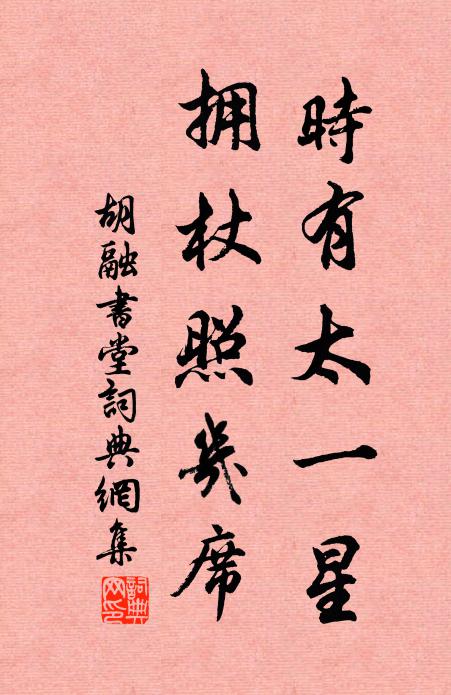 時有太一星
拥杖照几席
胡融書堂詞典網集
詞典网印